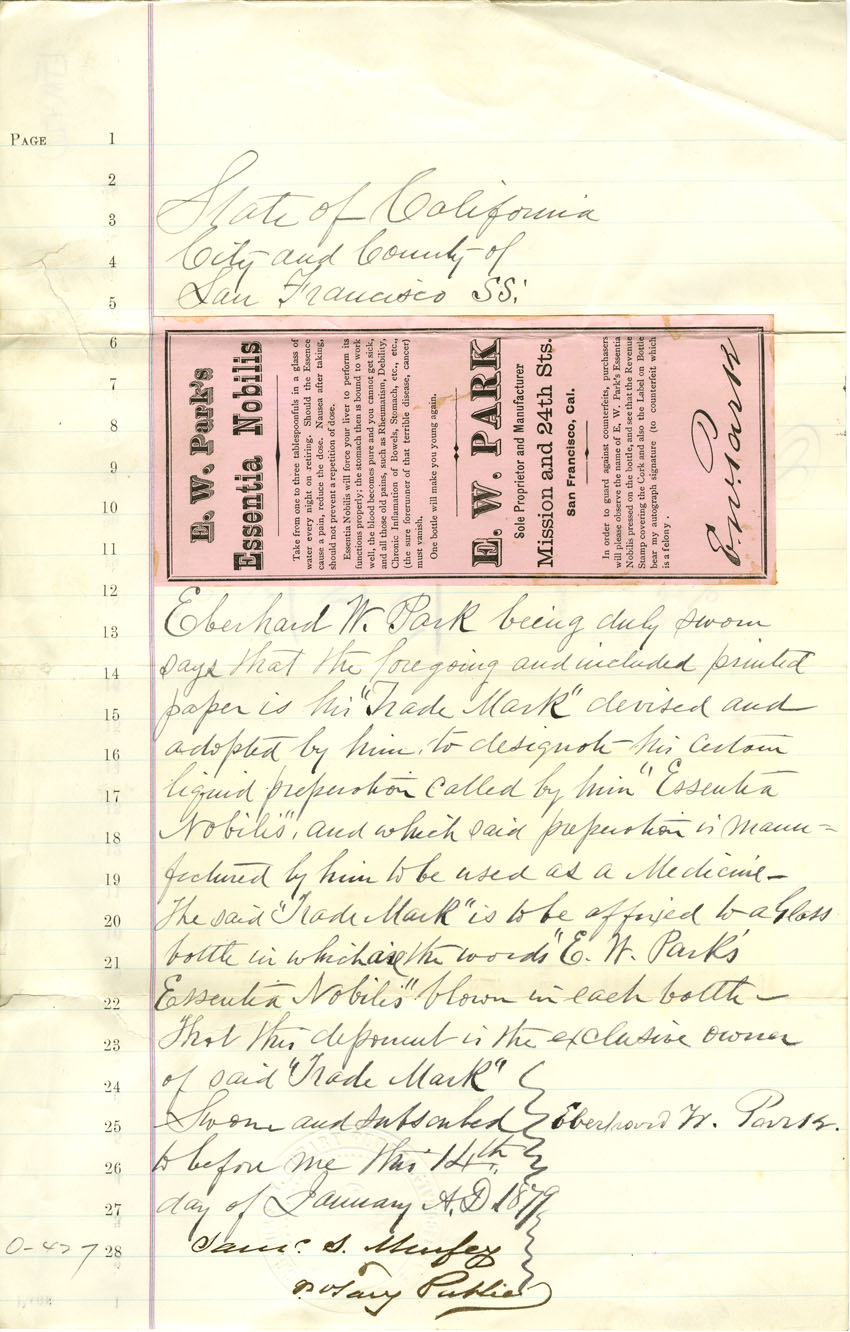 PAGE
1
2
State of California
3
City and County of
4
San Francisco SS:
5
6
7
8
9
10
11
12
E. W. Park's
Essentia Nobilis
Take from one to three tablespoonfuls in a glass of
water every night on retiring. Should the Essence
cause a pain, reduce the dose. Nausea after taking,
should not prevent a repetition of dose.
Essentia Nobilis will force your liver to perform its
functions properly; the stomach then is bound to work
well, the blood becomes pure and you cannot get sick,
and all those old pains, such as Rheumatism, Debility,
Chronic Inflamation of Bowels, Stomach, etc., etc.,
(the sure forerunner of that terrible disease, cancer)
must vanish.
One bottle will make you young again.
E. W. PARK
Sole Proprietor and Manufacturer
Mission and 24th Sts.
San Francisco, Cal.
In order to guard against counterfeits, purchasers
will please observe the name of E. W. Park's Essentia
Nobilis pressed on the bottle, and see that the Revenue
Stamp covering the Cork and also the Label on Bottle
bear my autograph signature (to counterfeit which
is a felony.
E. W. Park
Eberhard W. Park being duly sworn
13
says that the foregoing and included printed
14
paper is his "Trade Mark" devised and
15
adopted by him, to designate his certain
16
liquid preparation called by him "Essentia
17
Nobilis", and which said preparation is manu=
18
factured by him to be used as a Medicine–
19
The said "Trade Mark" is to be affixed to a Glass
20
bottle in which are the words "E. W. Park's
21
Essentia Nobilis" blown in each bottle–
22
That this deponent is the exclusive owner
23
of said "Trade Mark"
24
Sworn and subscribed Eberhard W. Park.
25
to before me this 14th
26
day of January A.D. 1879
27
0-427 28
Notary Public